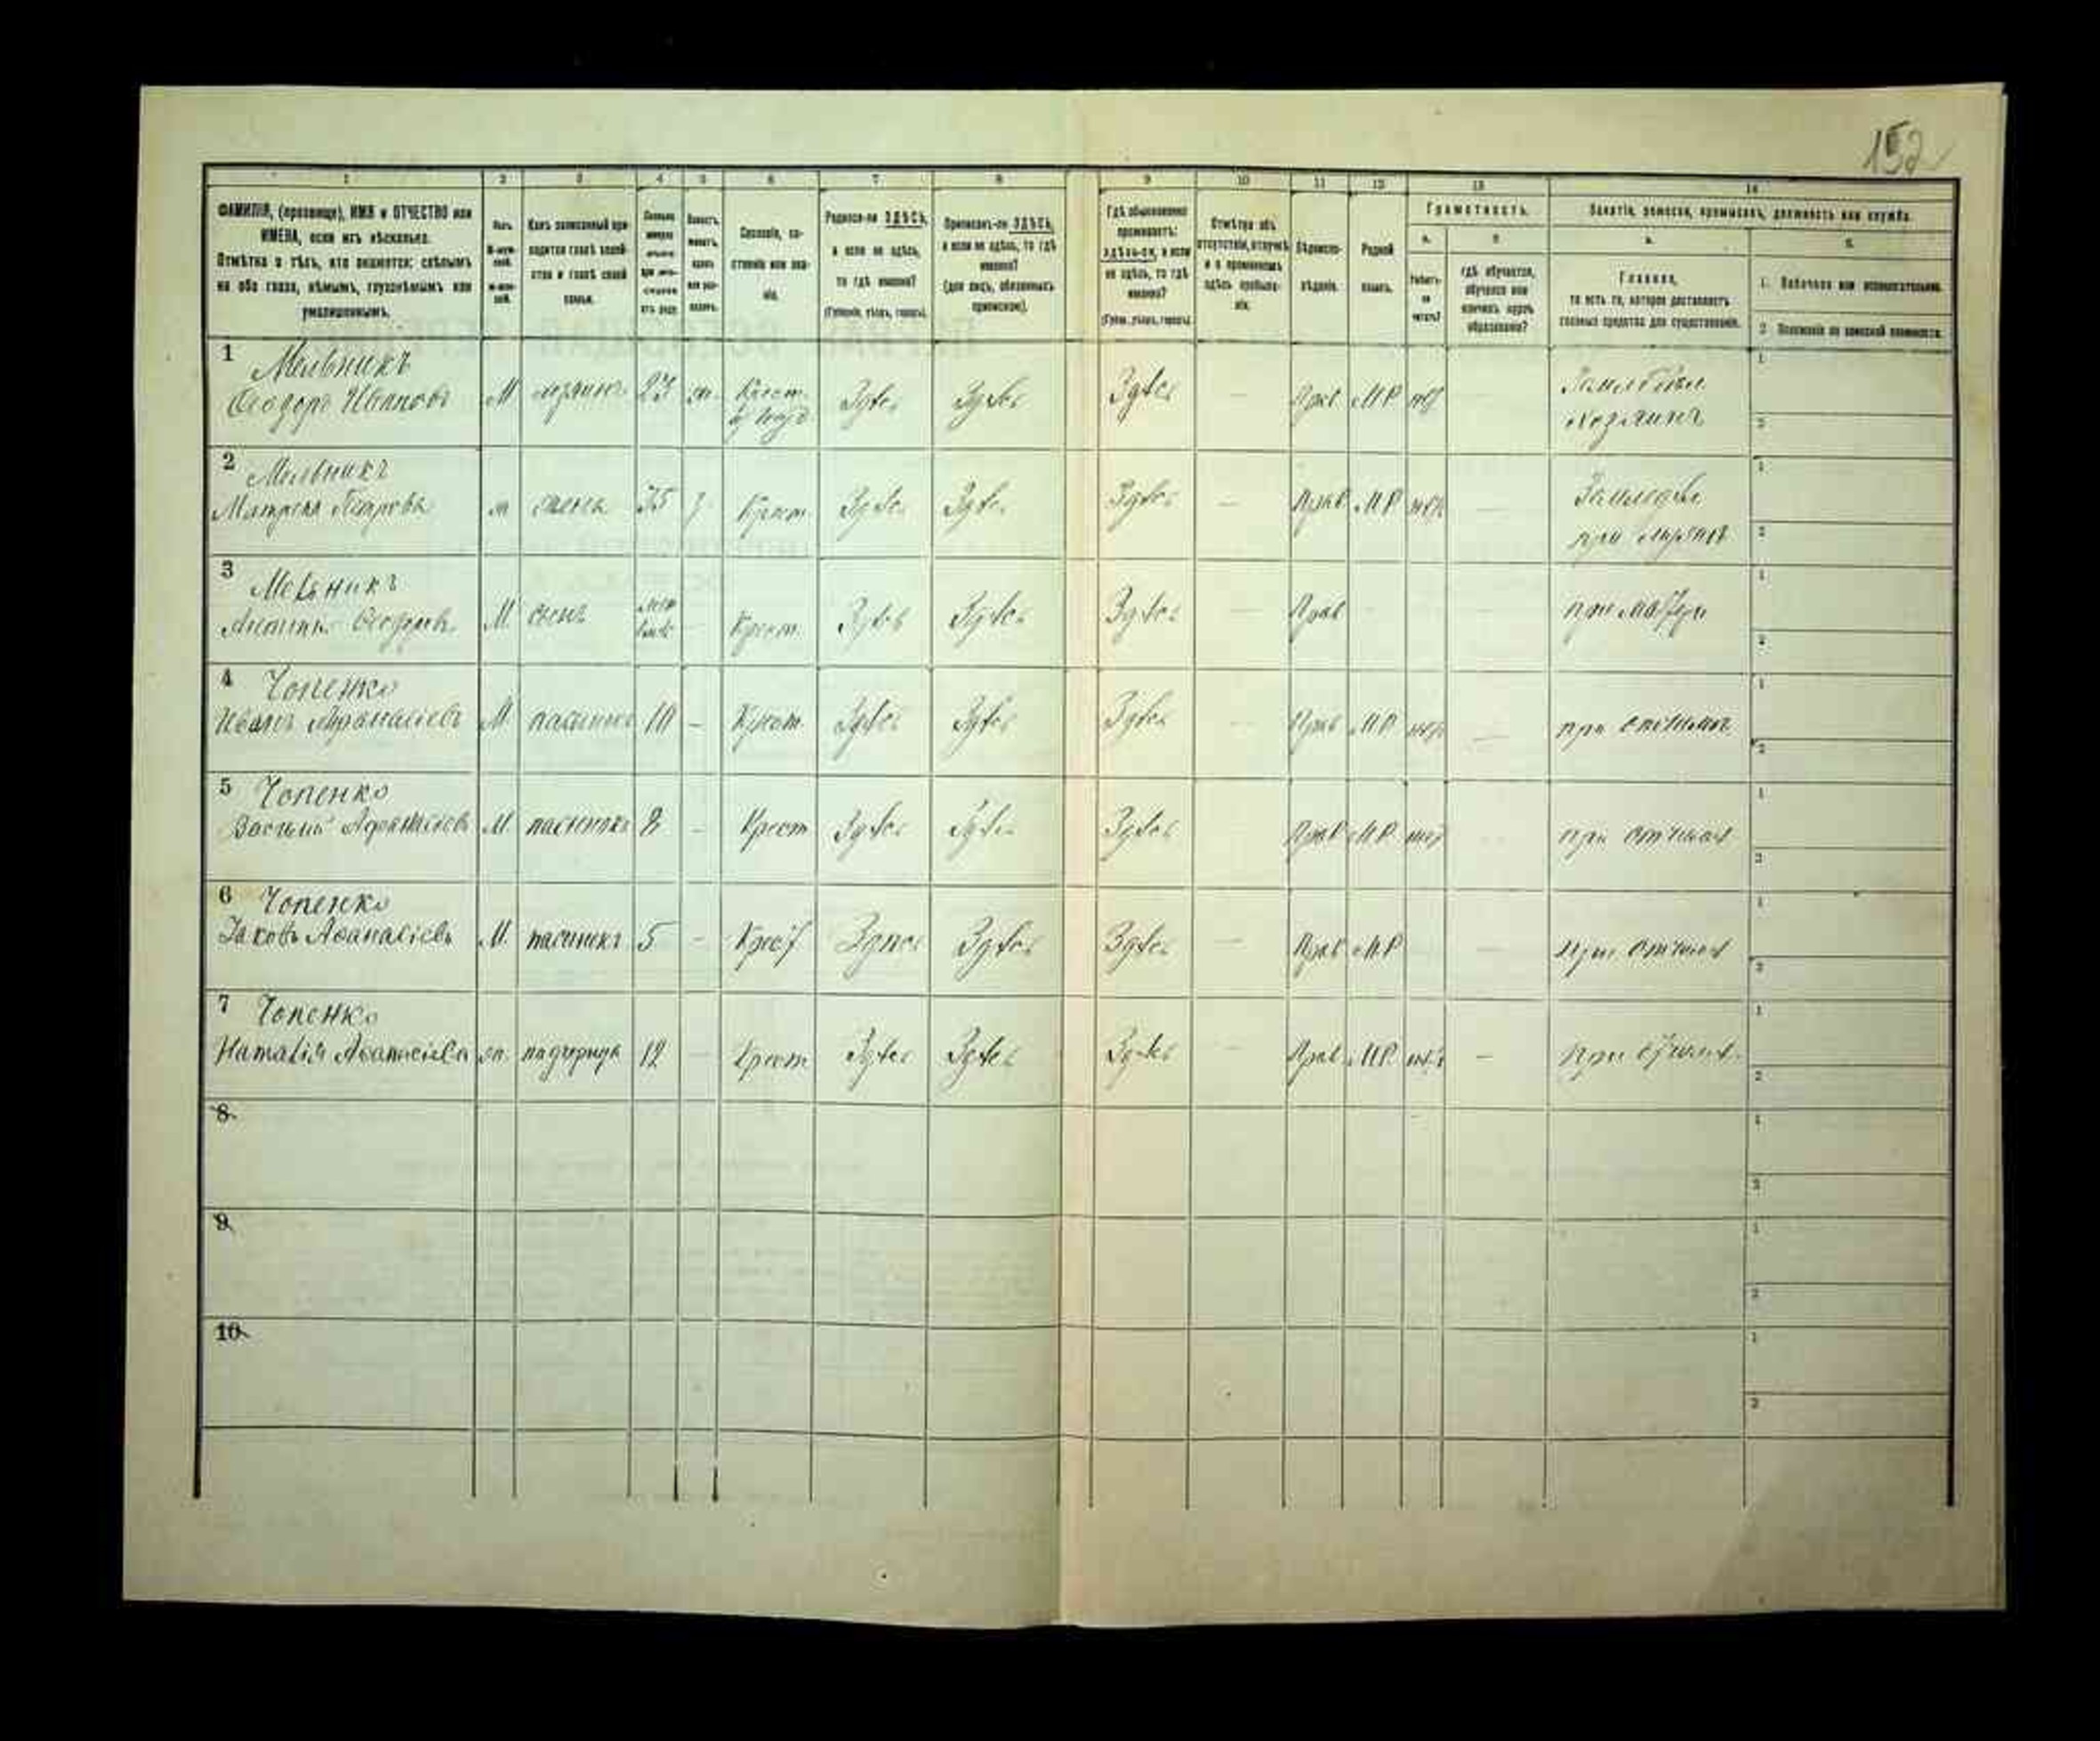 152
1 2 3 4 5 6 7 8 9 10 11 12 13 14
ФАМИЛІЯ, (прозвище), ИМЯ и ОТЧЕСТВО или
ИМЕНА, если ихъ нѣсколько.
Отмѣтка о тѣхъ, кто окажется: слѣпымъ
на оба глаза, нѣмымъ, глухонѣмымъ или
умалишеннымъ.
Полъ.
Какъ записанный при-
ходится главѣ хозяй-
ства и главѣ своей
семьи.
Сословіе, со-
стояніе или зва-
ніе.
Родился-ли ЗДѢСЬ,
а если не здѣсь,
то гдѣ именно?
(Губернія, уѣздъ, городъ).
Приписанъ-ли ЗДѢСЬ,
а если не здѣсь, то гдѣ
именно?
(для лицъ, обязанныхъ
припискою).
Гдѣ обыкновенно
проживаетъ:
здѣсь-ли, а если
не здѣсь, то гдѣ
именно?
(Губ., уѣздъ, городъ).
Отмѣтка объ
отсутствіи, отлучкѣ
и о временномъ
здѣсь пребыва-
ніи.
Вѣроиспо-
вѣданіе.
Родной
языкъ.
Грамотность.
а. б.
Умѣетъ-
ли
читать?
гдѣ обучается,
обучался или
кончилъ курсъ
образованія?
Занятіе, ремесло, промыселъ, должность или служба.
а. б.
Главное,
то есть то, которое доставляетъ
главныя средства для существованія.
1. Побочное или вспомогательное.
2. Положеніе по воинской повинности.
1 Мельникъ
Феодоръ Ивановъ М хозяинъ 27 ж. Крест. Здѣсь Здѣсь Здѣсь — Прав МР нѣт
хозяинъ
2 Мельникъ
Матрена Петрова ж жена 35 з. Крест. Здѣсь Здѣсь Здѣсь — Прав МР нѣт —
3 Мельникъ
М сынъ Крест. Здѣсь Здѣсь Здѣсь — Прав при матери
4 Чопенко
Иванъ Афанасіевъ М пасынокъ 10 — Крест. Здѣсь Здѣсь Здѣсь — Прав МР нѣт — при отчимѣ
5 Чопенко
Василій Афанасіевъ М. пасынокъ 8 - Крест Здѣсь Здѣсь Здѣсь Прав МР нѣт при отчимѣ
6 Чопенко
Іаковъ Аѳанасіевъ М. пасынокъ 5 - Крест Здѣсь Здѣсь Здѣсь — Прав МР при отчимѣ
7 Чопенко
Наталія Аѳанасіева ж. падчерица 12 - Крест Здѣсь Здѣсь Здѣсь — Прав МР. нѣт — при отчимѣ
8
9
10